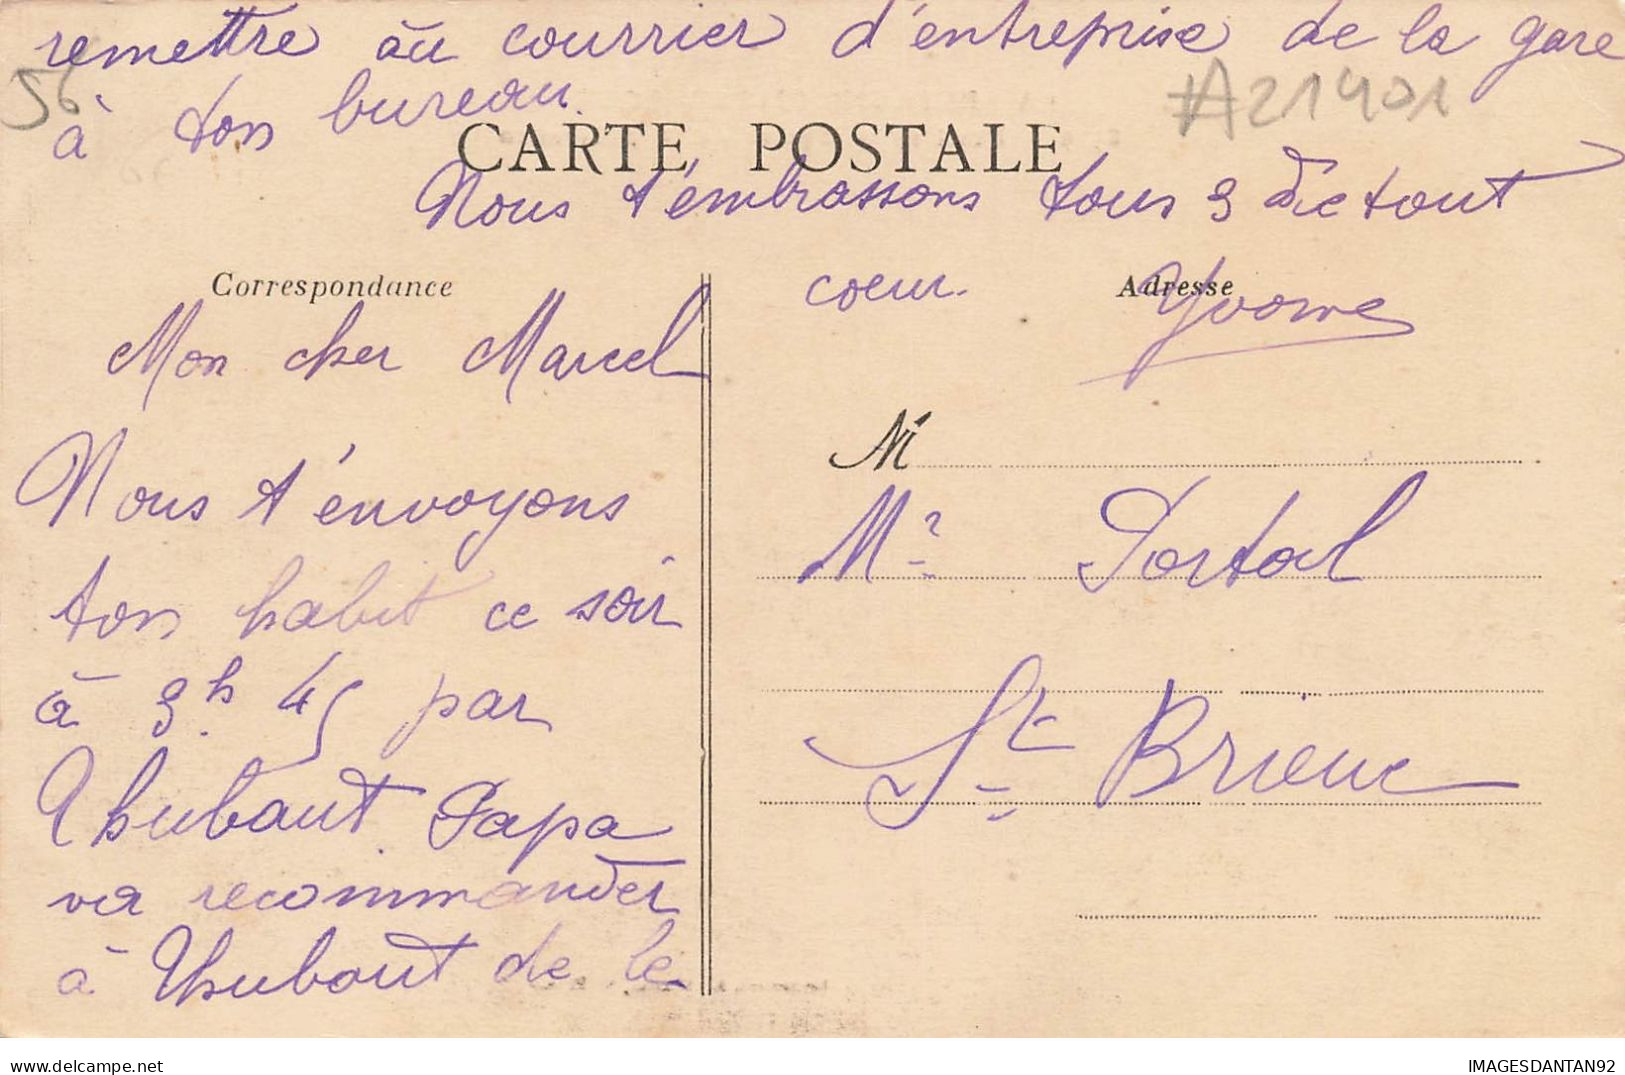 remettre au courrier d'entreprise de la gare
à ton bureau.
56
#A21401
CARTE POSTALE
Nous t'embrassons tous 3 de tout
coeur.
Yvonne
Correspondance
Adresse
Mon cher Marcel
Nous t'envoyons
ton habit ce soir
à 3h 45 par
Thubaut. Papa
va recommander
à Thubaut de le
M
Mr Portal
St Brieuc
IMAGESDANTAN92